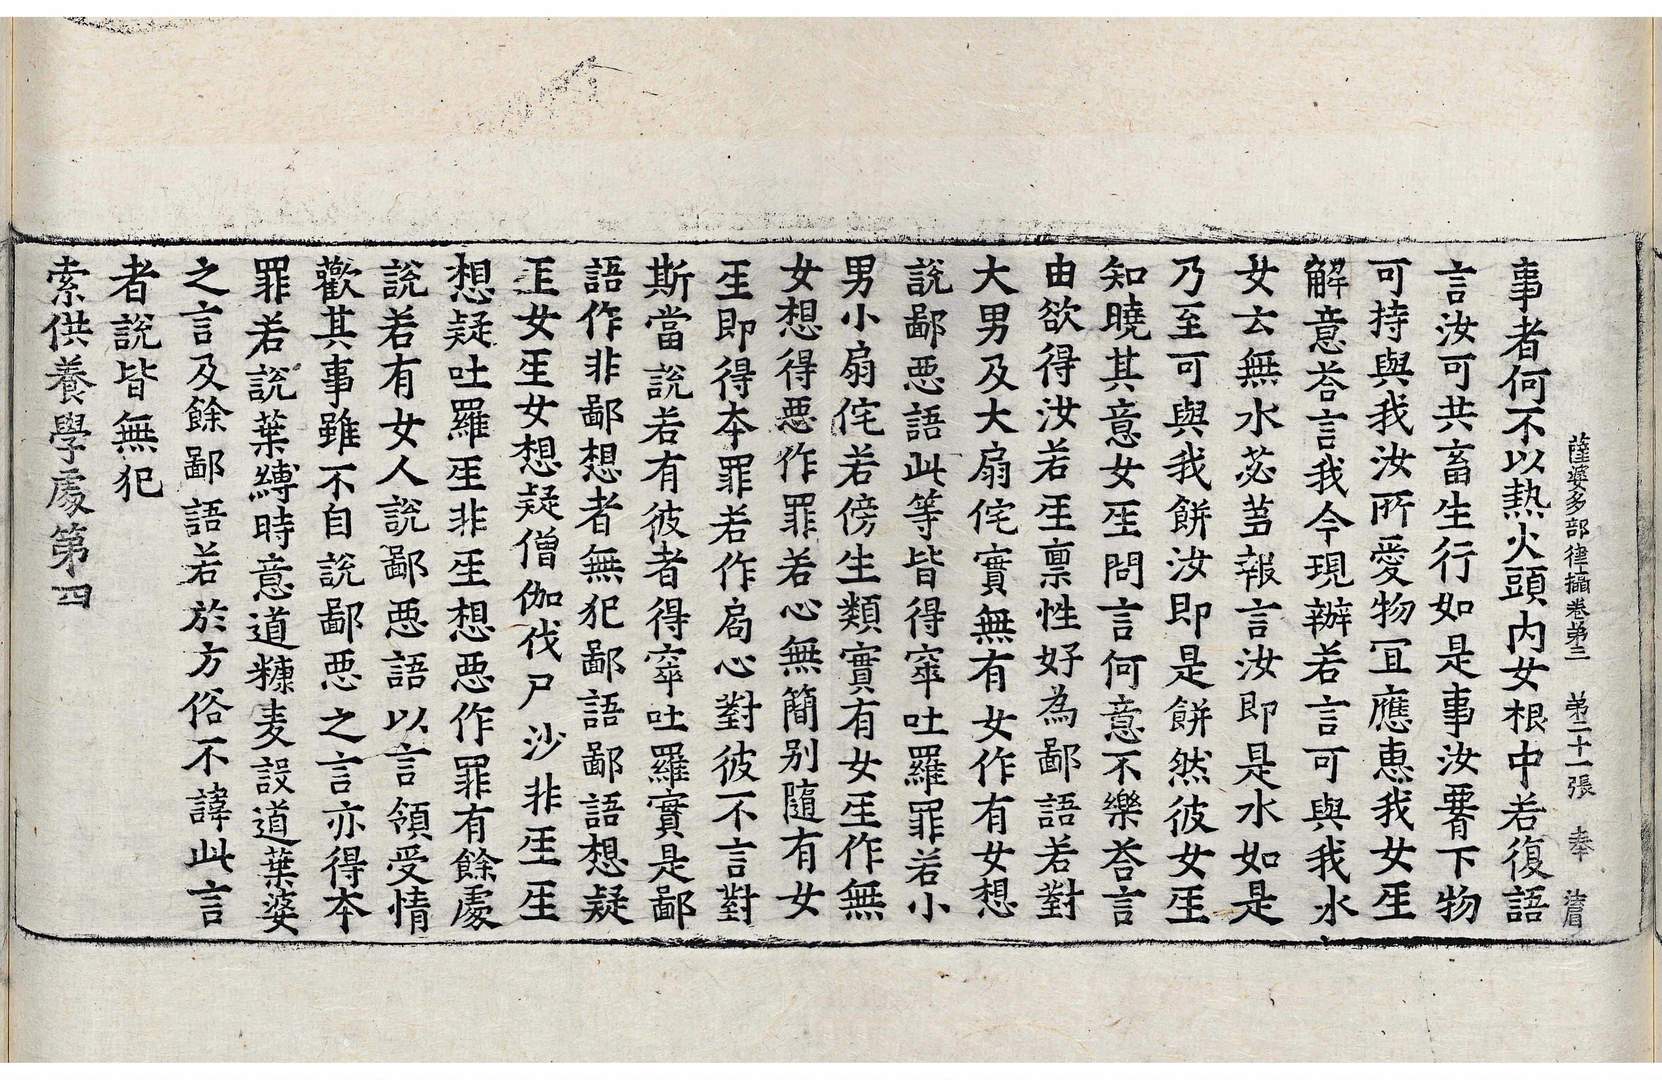 薩婆多部律攝卷苐三 苐二十一張 奉
事者何不以熱火頭內女根中若復語
言汝可共畜生行如是事汝要下物
可持與我汝所愛物冝應惠我女𤯔
解意荅言我今現辦若言可與我水
女云無水苾蒭報言汝即是水如是
乃至可與我餅汝即是餅然彼女𤯔
知曉其意女𤯔問言何意不樂荅言
由欲得汝若𤯔禀性好為鄙語若對
大男及大扇侘實無有女作有女想
說鄙惡語此等皆得窣吐羅罪若小
男小扇侘若傍生類實有女𤯔作無
女想得惡作罪若心無簡別隨有女
𤯔即得夲罪若作局心對彼不言對
斯當說若有彼者得窣吐羅實是鄙
語作非鄙想者無犯鄙語鄙語想疑
𤯔女𤯔女想疑僧伽伐尸沙非𤯔𤯔
想疑吐羅𤯔非𤯔想惡作罪有餘處
說若有女人說鄙惡語以言領受情
歡其事雖不自說鄙惡之言亦得夲
罪若說葉縛時意道糠麦設道葉婆
之言及餘鄙語若於方俗不諱此言
者說皆無犯
索供養學處第四